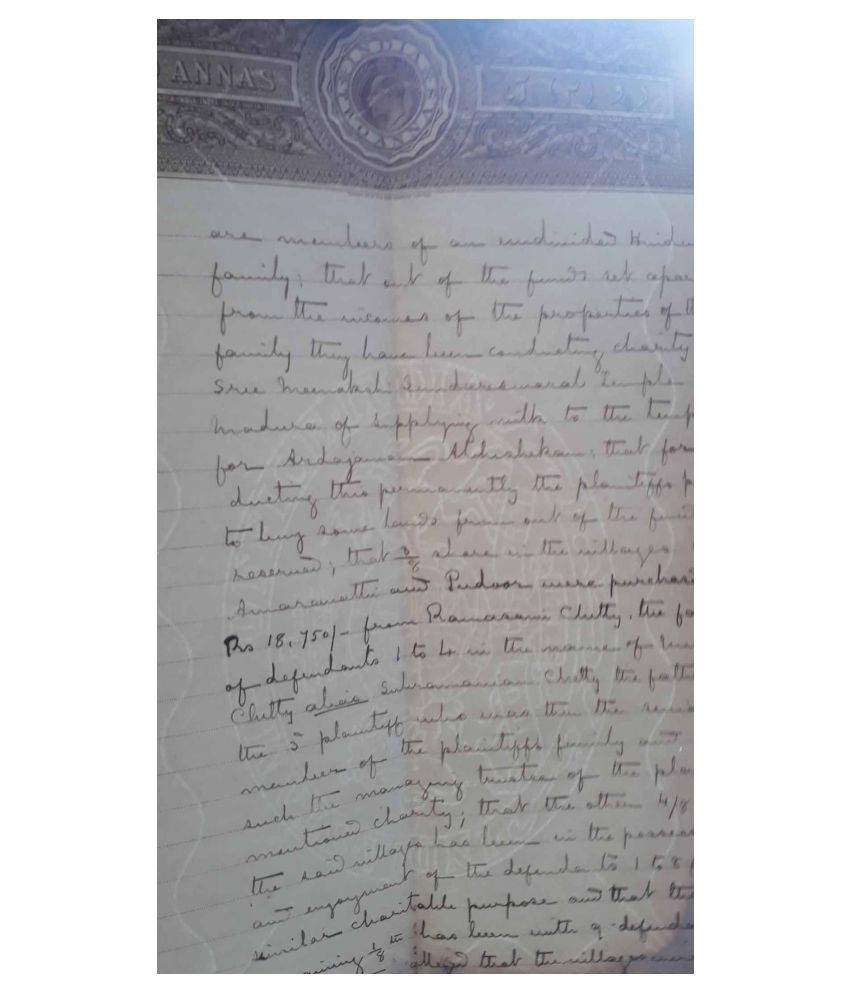 ANNAS
INDIA
are members of an undivided Hindu
family; that out of the funds set apar
from the incomes of the properties of th
family they have been conducting charity
Sree Meenakshi Sundareswaral Temple
Madura of supplying milk to the temp
for Ardajamam Abhishekam; that for
ducting this permanently the plaintiffs p
to buy some lands from out of the fund
reserved; that 3/8 share in the villages
Amaravathi and Pudoor were purchas
Rs 18,750/- from Ramasami Chetty, the fa
of defendants 1 to 4 in the name of
Chetty alias Subramanian Chetty the fath
the 3 plaintiff who was then the senio
member of the plaintiffs family and
such the managing trustee of the pla
mentioned charity; that the other 4/8
the said villages has been in the possess
and enjoyment of the defendants 1 to 8
similar charitable purpose and that the
aining 1/8th has been with 9 defenda
alleged that the villages